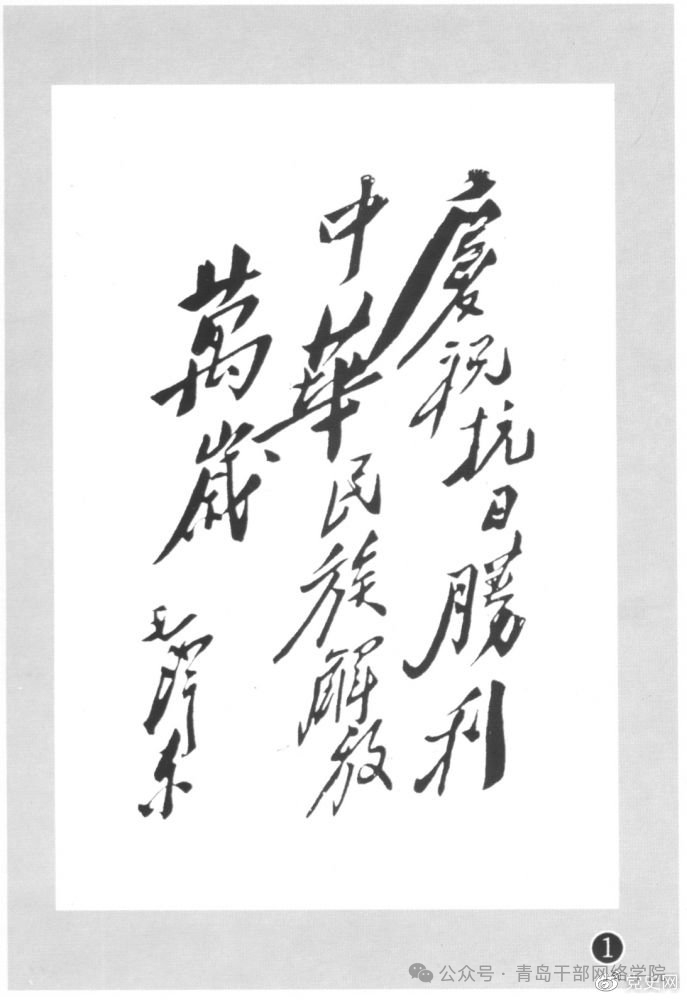 慶祝抗日勝利
中華民族解放
萬歲
毛澤东
1
公众号·青岛干部网络学院
党史网